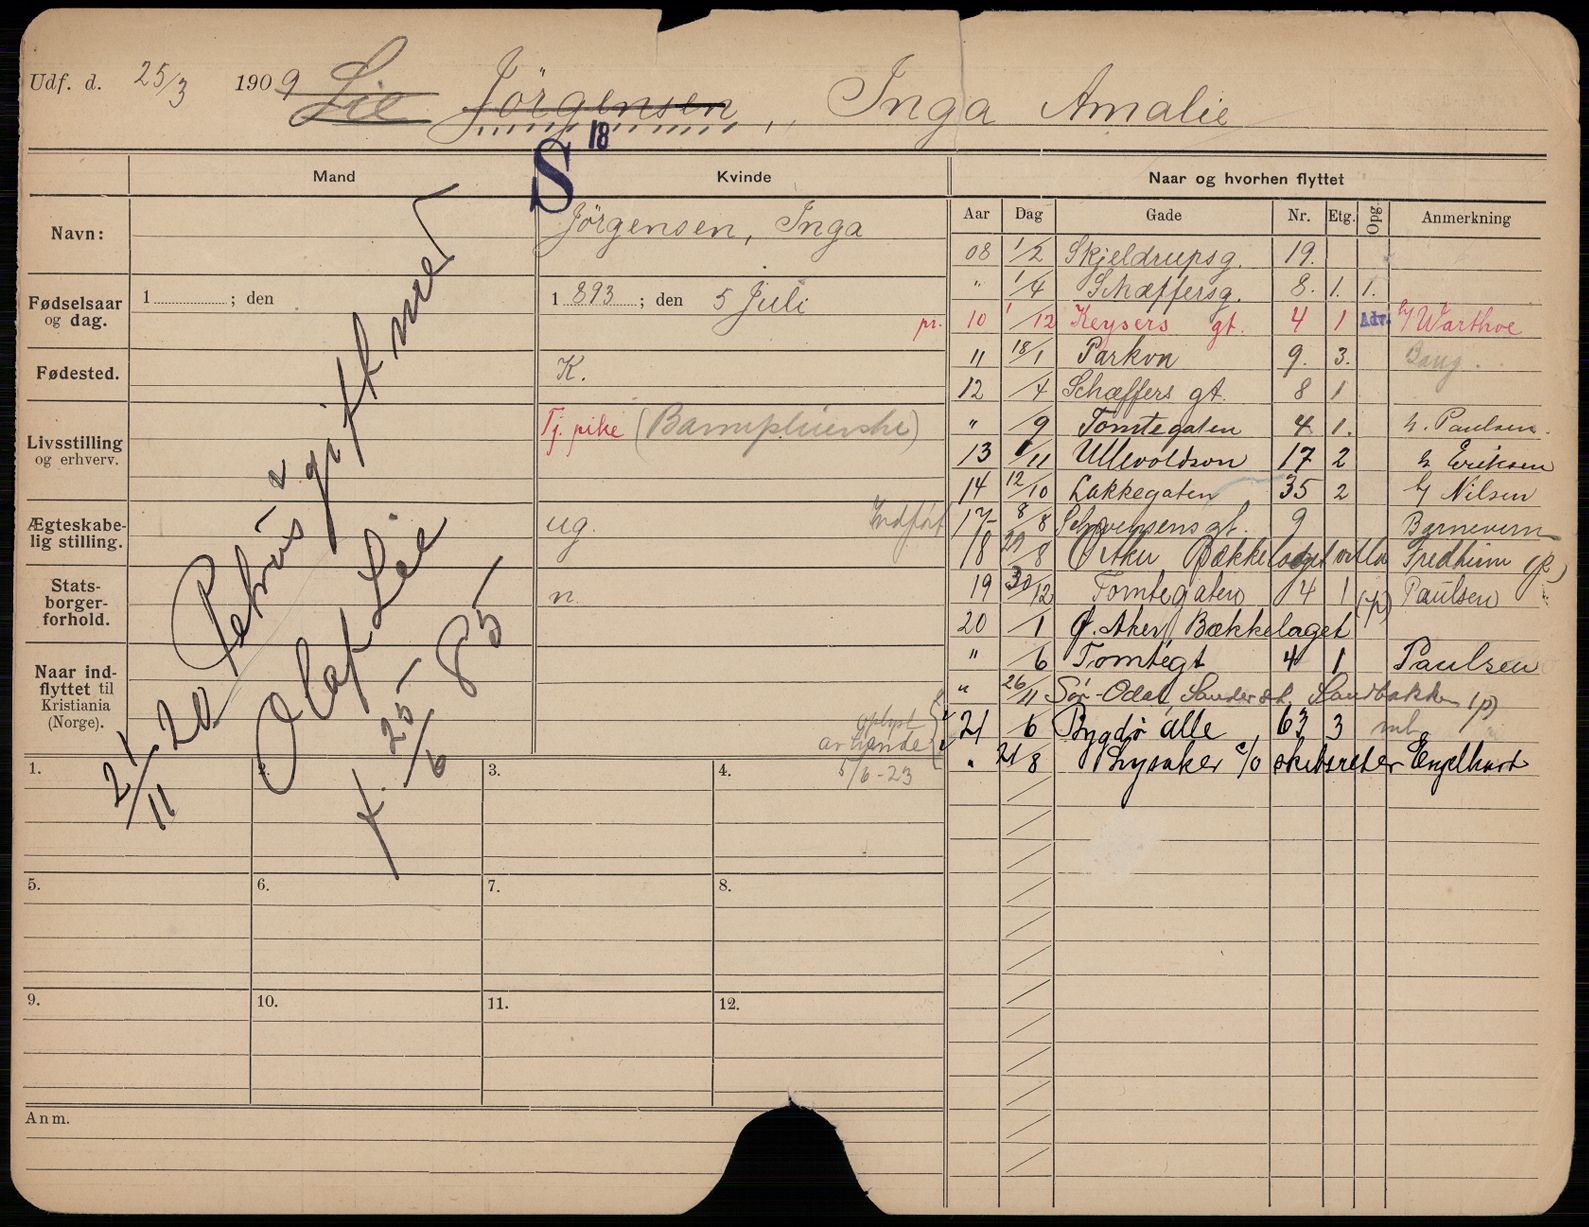 Udf. d. 25/3 1909 Lie Jörgensen, Inga Amalie
S 18
Mand Kvinde Naar og hvorhen flyttet
Navn: Jörgensen, Inga
Fødselsaar og dag. 1 ; den 1893 ; den 5 Juli
Fødested. K.
Livsstilling og erhverv. Tj. pike
Ægteskabelig stilling. ug. Indført
Statsborgerforhold. n.
Naar indflyttet til Kristiania (Norge).
21/11 20 gift med
Olaf Lie
f. 25/6 85
oplyst
av hende
5/6-23
Aar Dag Gade Nr. Etg. Opg. Anmerkning
08 1/2 Skjeldrupsg. 19.
" 1/4 Schæffersg. 8. 1. 1.
pr. 10 1/12 Keysers gt. 4 1 Adv. Warthoe
11 18/1 Parkvn 9. 3. Bang.
12 /4 Schæffers gt. 8 1
" /9 Tomtegaten 4 1. h. Paulsen.
13 1/11 Ullevoldsvn 17 2 h Eriksen
14 12/10 Lakkegaten 35 2 Nilsen
17 8/8 9
18 29/8 Ø Aker Bækkelaget villa Fredheim (p)
19 30/12 Tomtegaten 4 1 (p) Paulsen
20 /1 Ø. Aker Bækkelaget
" /6 Tomtegt 4 1 Paulsen
" 26/11 Sør-Odal Sander st. Sandbakken (p)
21 /6 Bygdø alle 63 3
" 21/8 Lysaker c/o skibsreder Engelhart
1. 2. 3. 4.
5. 6. 7. 8.
9. 10. 11. 12.
Anm.